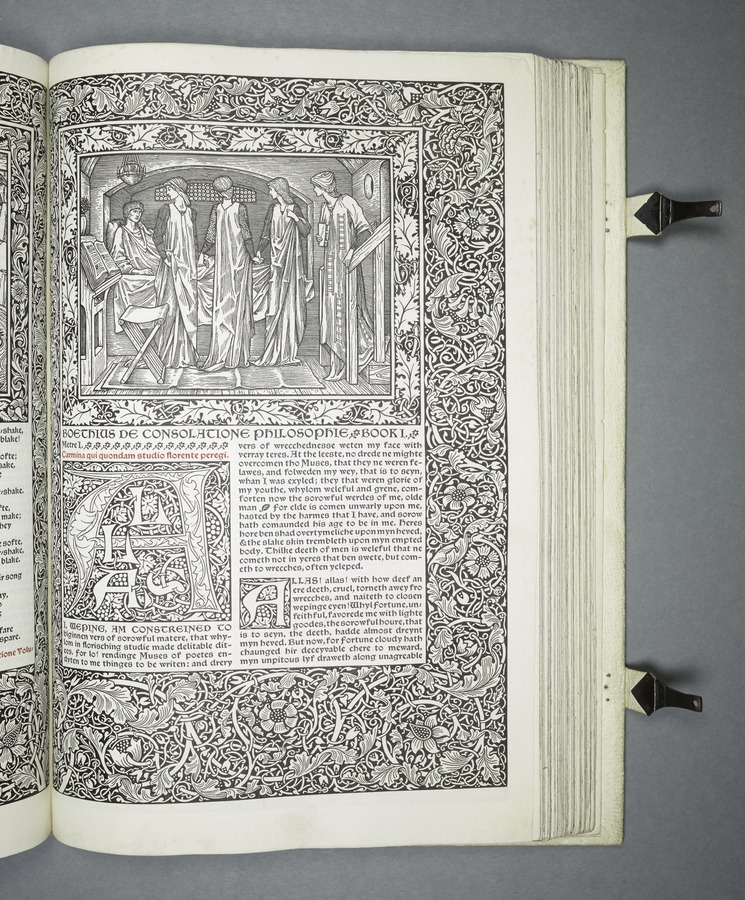 shake,
blake!
ofte;
sake,
shake.
fte,
make;
hey
softe,
shake,
blake.
ir song
fare
spare.
BOETHIUS DE CONSOLATIONE PHILOSOPHIE. BOOK I.
Metre I.
Carmina qui quondam studio florente peregi.
ALLAS
I, WEPING, AM CONSTREINED TO
biginnen vers of sorowful matere, that why-
lom in florisching studie made delitable dit-
ees. For lo! rendinge Muses of poetes en-
dyten to me thinges to be writen; and drery
vers of wrecchednesse weten my face with
verray teres. At the leeste, no drede ne mighte
overcomen tho Muses, that they ne weren fe-
lawes, and folweden my wey, that is to seyn,
whan I was exyled; they that weren glorie of
my youthe, whylom weleful and grene, com-
forten now the sorowful werdes of me, olde
man. For elde is comen unwarly upon me,
hasted by the harmes that I have, and sorow
hath comaunded his age to be in me. Heres
hore ben shad overtymeliche upon myn heved,
& the slake skin trembleth upon myn empted
body. Thilke deeth of men is weleful that ne
cometh not in yeres that ben swete, but com-
eth to wrecches, often yclepped.
ALLAS! allas! with how deef an
ere deeth, cruel, torneth awey fro
wrecches, and naiteth to closen
wepinge eyen! Whyl Fortune, un-
feithful, favorede me with lighte
goodes, the sorowful houre, that
is to seyn, the deeth, hadde almost dreynt
myn heved. But now, for Fortune cloudy hath
chaunged hir deceyvable chere to meward,
myn unpitous lyf draweth along unagreable